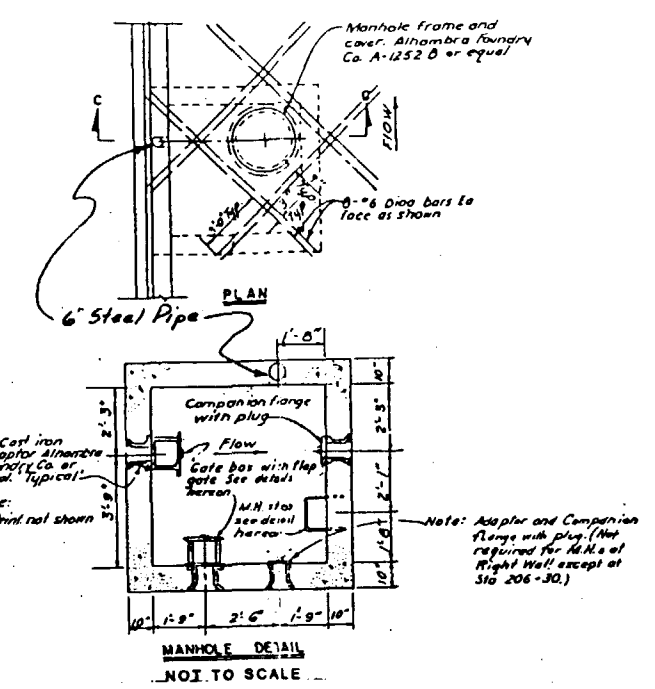 Manhole frame and
cover. Alhambra Foundry
Co. A-1252 B or equal
C
C
FLOW
8-#6 Diag bars Ea
face as shown
2'-0" Typ
PLAN
6" Steel Pipe
1'-8"
10"
2'-3"
2'-3"
Companion flange
with plug
Cast iron
Alhambra
Co. or
Typical
Flow
Gate box with flap
gate See details
hereon
2'-1"
M.H. step
see detail
hereon
not shown
3'-9"
1'-8"
10"
Note: Adaptor and Companion
flange with plug. (Not
required for M.H.s at
Right Wall except at
Sta 206+30.)
10"
1'-9"
2'-6"
1'-9"
10"
MANHOLE DETAIL
NOT TO SCALE